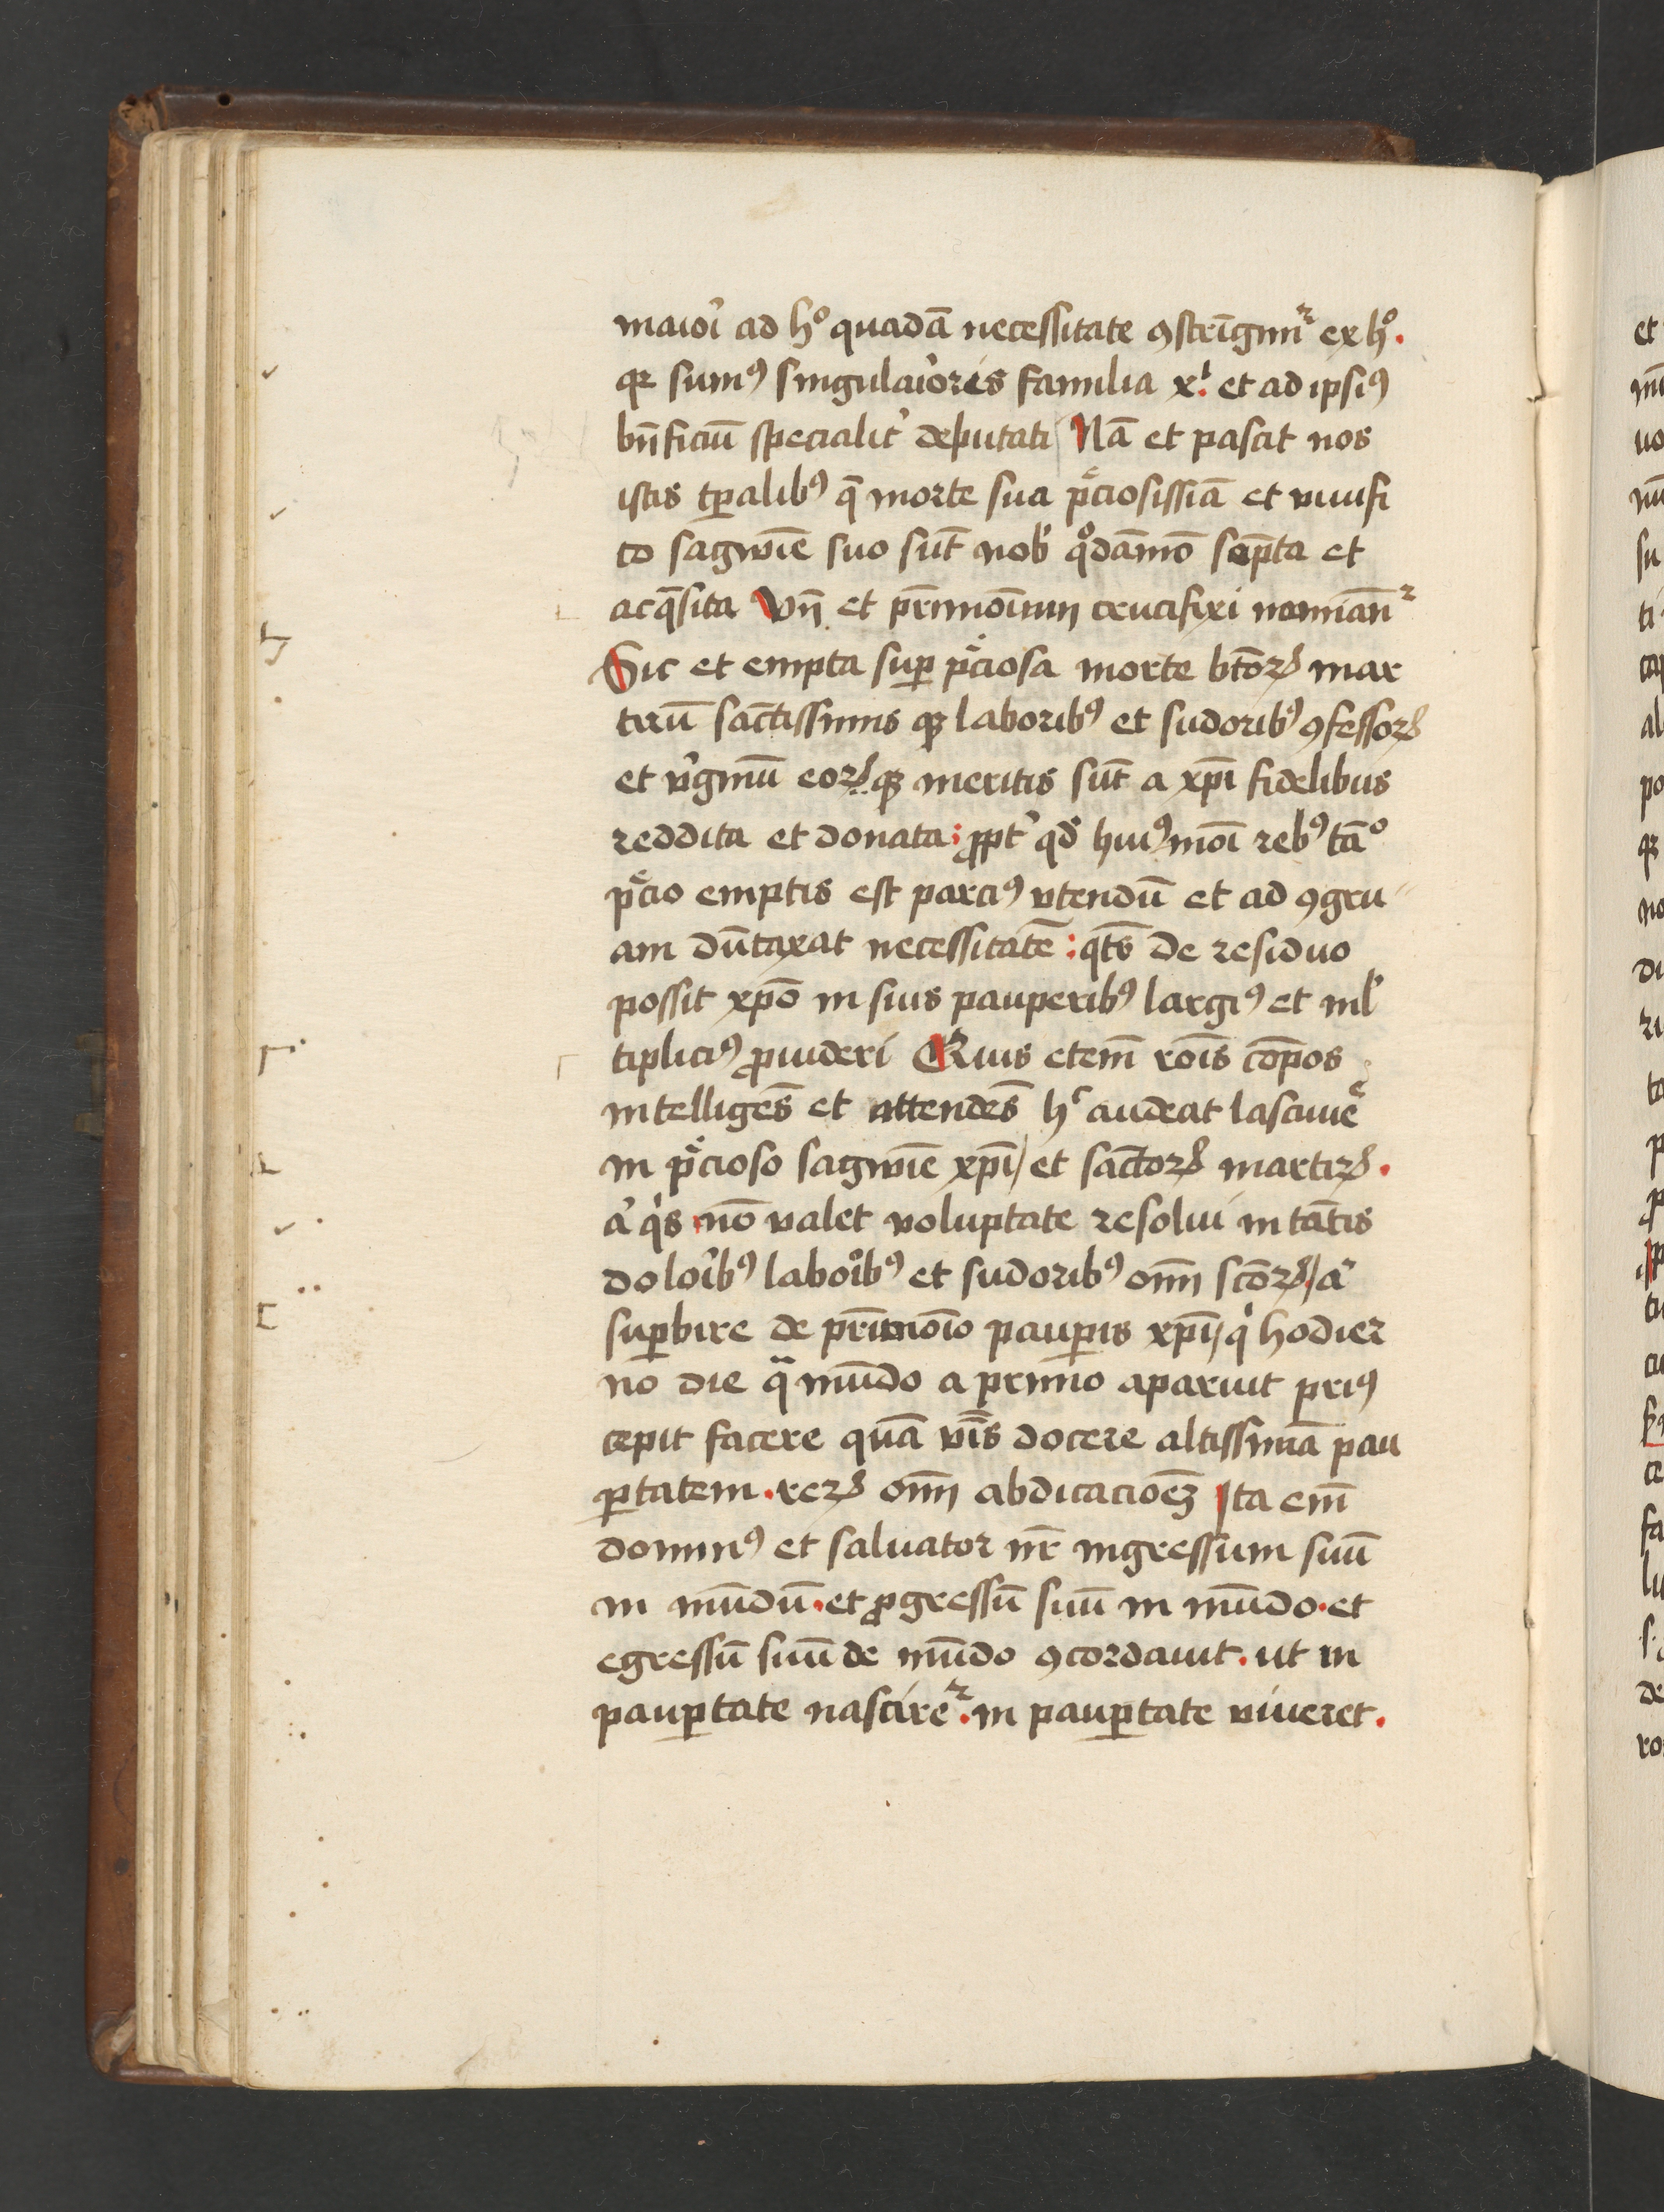 maioi̾ ad hͦ quadā necessitate ꝯstrīgim᷑ ex hͦ.
qꝛ sumꝰ singulaio̾res familia xⁱ. et ad ipsiꝰ
bn̄ficiū specialit̾ deputati Nā et pascit nos
istis tp̄alibꝰ q̄ morte sua p̄ciosissīa et viuifi
co sagwīe suo sūt nob̾ qͦdāmō scēpta et
acq̄sita Vn̄ et pr̄imoīum crucifixi nomīan᷑
Sic et empta suꝑ p̄ciosa morte btōꝝ mar
tirū sāctissimis qꝫ laboribꝰ et sudoribꝰ ꝯfessoꝝ
et v̾ginū eoꝝ qꝫ meritis sūt a xp̄i fidelibus
reddita et donata: ꝓpt̾ qd̾ huiꝰmōi rebꝰ tāͦ
p̄cio emptis est parciꝰ vtendū et ad ꝯgru
am dūtaxat necessitatē: qt̄s de residuo
possit xp̄o in suis pauperibꝰ largiꝰ et ml̾
tipliciꝰ ꝓuideri Quis eteīm rōis cōpos
intelligēs et attendēs hͨ audeat lasciuiē
in p̄cioso sagwīe xp̄i/ et sāctoꝝ martiꝝ.
a̾ qͥs nō valet voluptate resolui in tātis
doloi̾bꝰ laboi̾bꝰ et sudoribꝰ oīm sc̄oꝝ/ a̾
suꝑbire de pr̄imoīo pauꝑis xp̄i/ qͥ hodier
no die qᷓ mūdo a primo aparuit priꝰ
cepit facere quā v̄is docere altissimā pau
ꝑtatem. reꝝ oīm abdicacioēꝫ Ita eīm
dominꝰ et saluator nr̄ ingressum suū
in mūdū. et ꝓgressū suū in mūdo. et
egressū suū de mūdo ꝯcordauit. ut in
pauꝑtate nascire᷑. in pauꝑtate viueret.